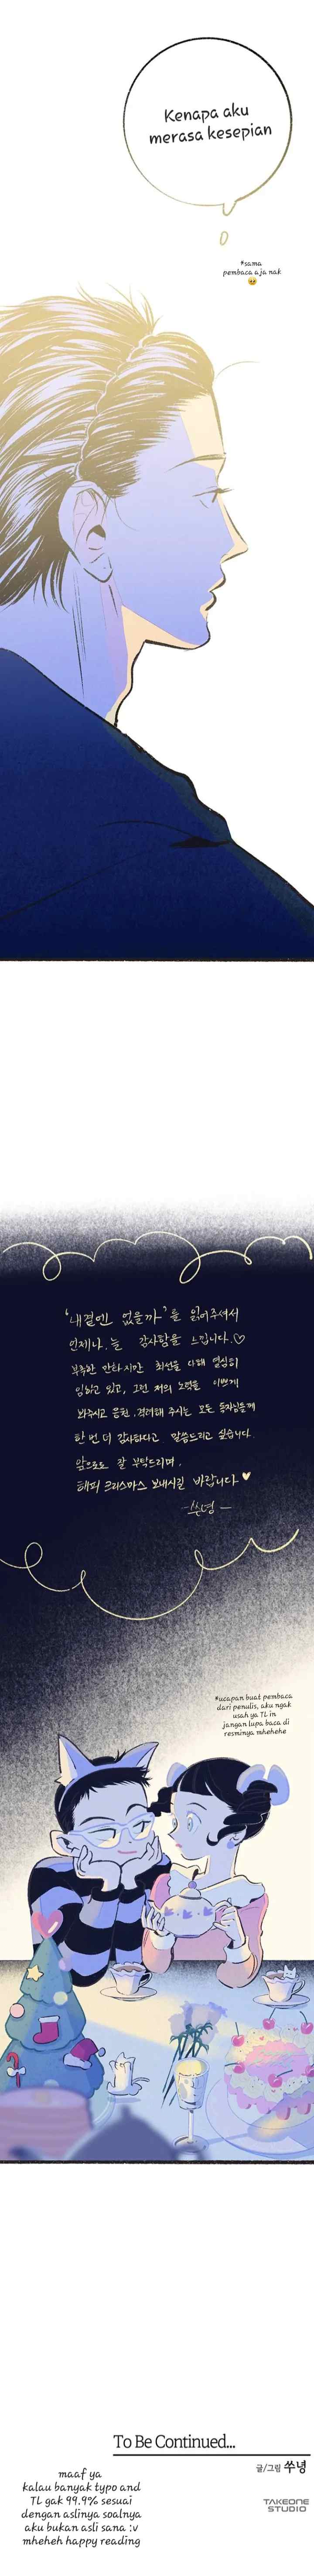 Kenapa aku
merasa kesepian
*sama
pembaca aja nak
'내곁엔 없을까'를 읽어주셔서
언제나. 늘 감사함을 느낍니다.♡
부족한 만화지만 최선을 다해 열심히
임하고 있고, 그런 저의 노력을 이쁘게
봐주시고 응원, 격려해 주시는 모든 독자님들께
한 번 더 감사하다고 말씀드리고 싶습니다.
앞으로도 잘 부탁드리며,
해피 크리스마스 보내시길 바랍니다♥
-쑤녕-
*ucapan buat pembaca
dari penulis, aku ngak
usah ya TL in
jangan lupa baca di
resminya mhehehe
To Be Continued...
글/그림 쑤녕
maaf ya
kalau banyak typo and
TL gak 99.9% sesuai
dengan aslinya soalnya
aku bukan asli sana :v
mheheh happy reading
TAKEONE
STUDIO